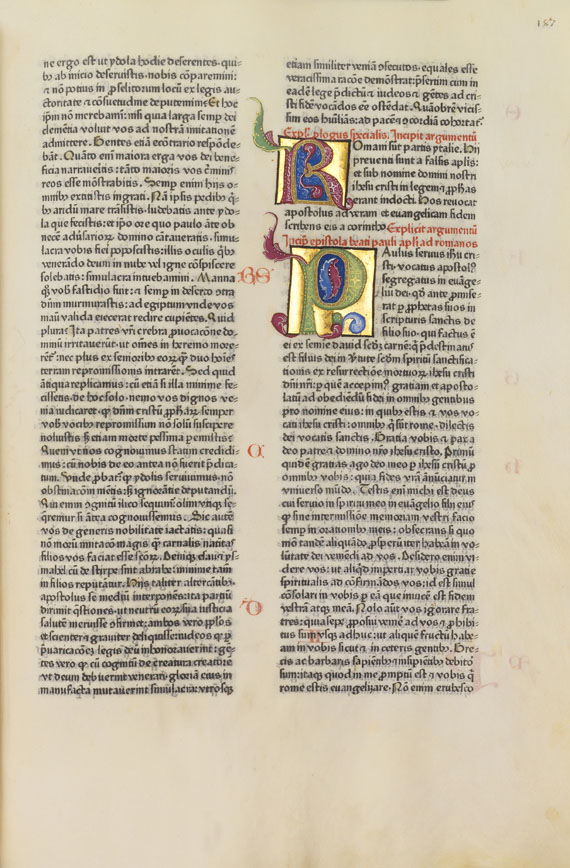 187
ne ergo est ut ydola hodie deserentes · qui-
bꝫ ab inicio deseruistis · nobis cōparemini:
auctoritate ⁊ cōsuetudine deputemini · Et hoc
ip̄m nō merebamī: nisi quia larga semp̄ dei
clemētia voluit vos ad nostrā imitationē
admittere. Gentes etiā ecōtrario respōde-
bāt. Quāto em̄ maiora erga vos dei bene-
ficia narraueritis: tāto maioris vos c̄minis
reos esse mōstrabitis. Semp̄ enim hijs o-
mnibꝫ extitistis ingrati. Nā ipsis pedibꝫ q̄-
bꝫ aridū mare trāsistis: ludebatis ante ydo-
la que fecistis: et ip̄o ore quo paulo āte ob
necē adūsarioꝝ domino cātaueratis · simu-
lacra vobis fieri poposcistis: illis oculis q̄bꝫ
venerādo deum in nube vel igne cōspicere
solebatis: simulacra intuebamini. Manna
q̄ꝫ vob̄ fastidio fuit: ⁊ semp̄ in deserto cōtra
dn̄m murmurastis: ad egiptum vnde vos
manu valida eiecerat redire cupiētes. Quid
plura? Ita patres vr̄i crebra p̱uocacōne do-
minū irritauerūt · ut omēs in heremo more-
rēt̉: nec plus ex senioribꝫ eoꝝ q̄ꝫ duo hoīes
terram repromissionis intrarēt. Sed quid
ātiqua replicamus: cū etiā si illa minime fe-
cissetis · de hoc solo · nemo vos dignos ve-
nia iudicaret · ꝙ dn̄m cristū p̱phaꝝ semper
vob̄ vocibꝫ repromissum nō solū suscipere
noluistis · sꝫ etiam morte pessima p̱emistis:
Quē nr̄i ut nos cognouimꝰ statim credidi-
mus: cū nobis de eo antea nō fuerit p̄dica-
tum. Vnde p̱bat̉ · ꝙ ydolis seruiuimus · nō
obstinacōni mētis: sꝫ ignorātie deputandū.
Qui enim ognitū ilico sequim̉: olim vtiqꝫ se-
q̄remur si ātea cognouissemus. Sic autē
vos de generis nobilitate iactatis: quasi
nō morū imitacō magis q̄ꝫ carnalis natiuitas
filios vos faciat esse sc̄oꝝ. Deniqꝫ esau ⁊ ys-
mahel cū de stirpe sint abrahe: minime tamē
in filios reputātur. Hijs taliter altercātibꝫ ·
apostolus se mediū interponēs: ita partiū
dirimit q̄stiones · ut neutrū eoꝝ sua iusticia
salutē meruisse ɔfirmet: ambos vero p̱p̄los
et scienter ⁊ grauiter deliquisse: iudeos ꝙ p̱
p̄uaricacōeꝫ legis deū inhonorauerīt: gē-
tes vero ꝙ cū cognitū de creatura creatorē
vt deum debuerint venerari · gloriā eius in
manufacta mutauerint simulacra: vtrosqꝫ
etiam similiter veniā ɔsecutos · equales esse
veracissima racōe demōstrat: p̄sertim cum in
eadē lege p̄dictū ⁊ iudeos ⁊ gētes ad cri-
sti fidē vocādos eē ostēdat. Quāobrē vicis-
sim eos humiliās: ad pacē ⁊ ɔcordiā cohortat̉
Expl̄ · p̱logus sp̄cialis · Incipit argumentū
Romani sūt partis ytalie. Hij
preuenti sunt a falsis apl̄is:
et sub nomine domini nostri
ihesu cristi in legem ⁊ p̱phetas
erant inducti. Hos reuocat
apostolus ad veram et euangelicam fidem
scribens eis a corintho · Explicit argumentū
Incip̄ epistola beati pauli apl̄i ad romanos
Paulus seruus ih̄u cri-
sti · vocatus apostol̉ ·
segregatus in euāge-
liū dei · qd̄ ante p̱mise-
rat p̱ p̱phetas suos in
scripturis sanctis de
filio suo · qui factus ē
ei ex semīe dauid scd̄m carnē: q̄ p̄destinatꝰ
est filius dei in v̄tute scd̄m spiritū sanctifica-
tionis ex resurrectiōe mortuoꝝ ihesu cristi
dn̄i nr̄i: p̱ quē accepimꝰ gratiam et aposto-
latū ad obediendū fidei in omnibꝫ gentibus
pro nomine eius: in quibꝫ estis ⁊ vos vo-
cati ihesu cristi: omnibꝫ q̄ sūt rome · dilectis
dei vocatis sanctis. Gratia vobis ⁊ pax a
deo patre ⁊ domino nr̄o ihesu cristo. Primū
quidē gratias ago deo meo p̱ ihesū cristū p̱
omnibꝫ vobis: quia fides vr̄a ānūciatur in
vniuerso mūdo. Testis em̄ michi est deus
cui seruio in spiritu meo in euāgelio filij eiꝰ
ꝙ sine intermissiōe memoriam vestri facio
semp̄ in orationibꝫ meis: obsecrans si quo
mō tandē aliquādo p̱sperū iter habeā in vo-
lūtate dei veniēdi ad vos. Desidero enim vi-
dere vos: ut aliqd̄ impertiar vobis gratie
spiritualis ad cōfirmādos vos: id est simul
cōsolari in vobis p̱ eā que inuicē est fidem
vestrā atqꝫ meā. Nolo aūt vos ignorare fra-
tres: quia sepe p̱posui venire ad vos ⁊ p̱hibi-
tus sum vsqꝫ adhuc: ut aliquē fructū habe-
am in vobis sicut ⁊ in ceteris gentibꝫ. Gre-
cis ac barbaris sapientibꝫ ⁊ insipiētibꝫ debitor
sum: itaqꝫ quod in me p̱mptū est ⁊ vobis q̄
rome estis euangelizare. Nō enim erubesco